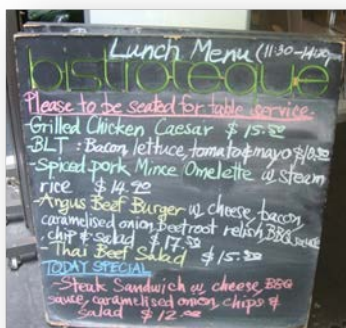 Lunch Menu (11:30-14:30pm
bistroteque
Please to be seated for table service.
-Grilled Chicken Caesar $15.50
-BLT : Bacon, lettuce, tomato & mayo $10.50
-Spiced pork Mince Omelette w steam
rice $14.90
-Angus Beef Burger w cheese, bacon,
caramelised onion, Beetroot relish, BBQ sauce
chip & salad $17.50
-Thai Beef Salad $15.50
TODAY SPECIAL
-Steak Sandwich w cheese, BBQ
sauce, caramelised onion, chips &
salad $12.00